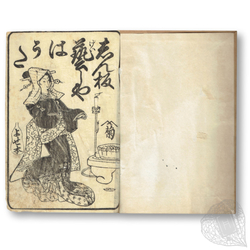 志ん板
藝しや
はうた
菊